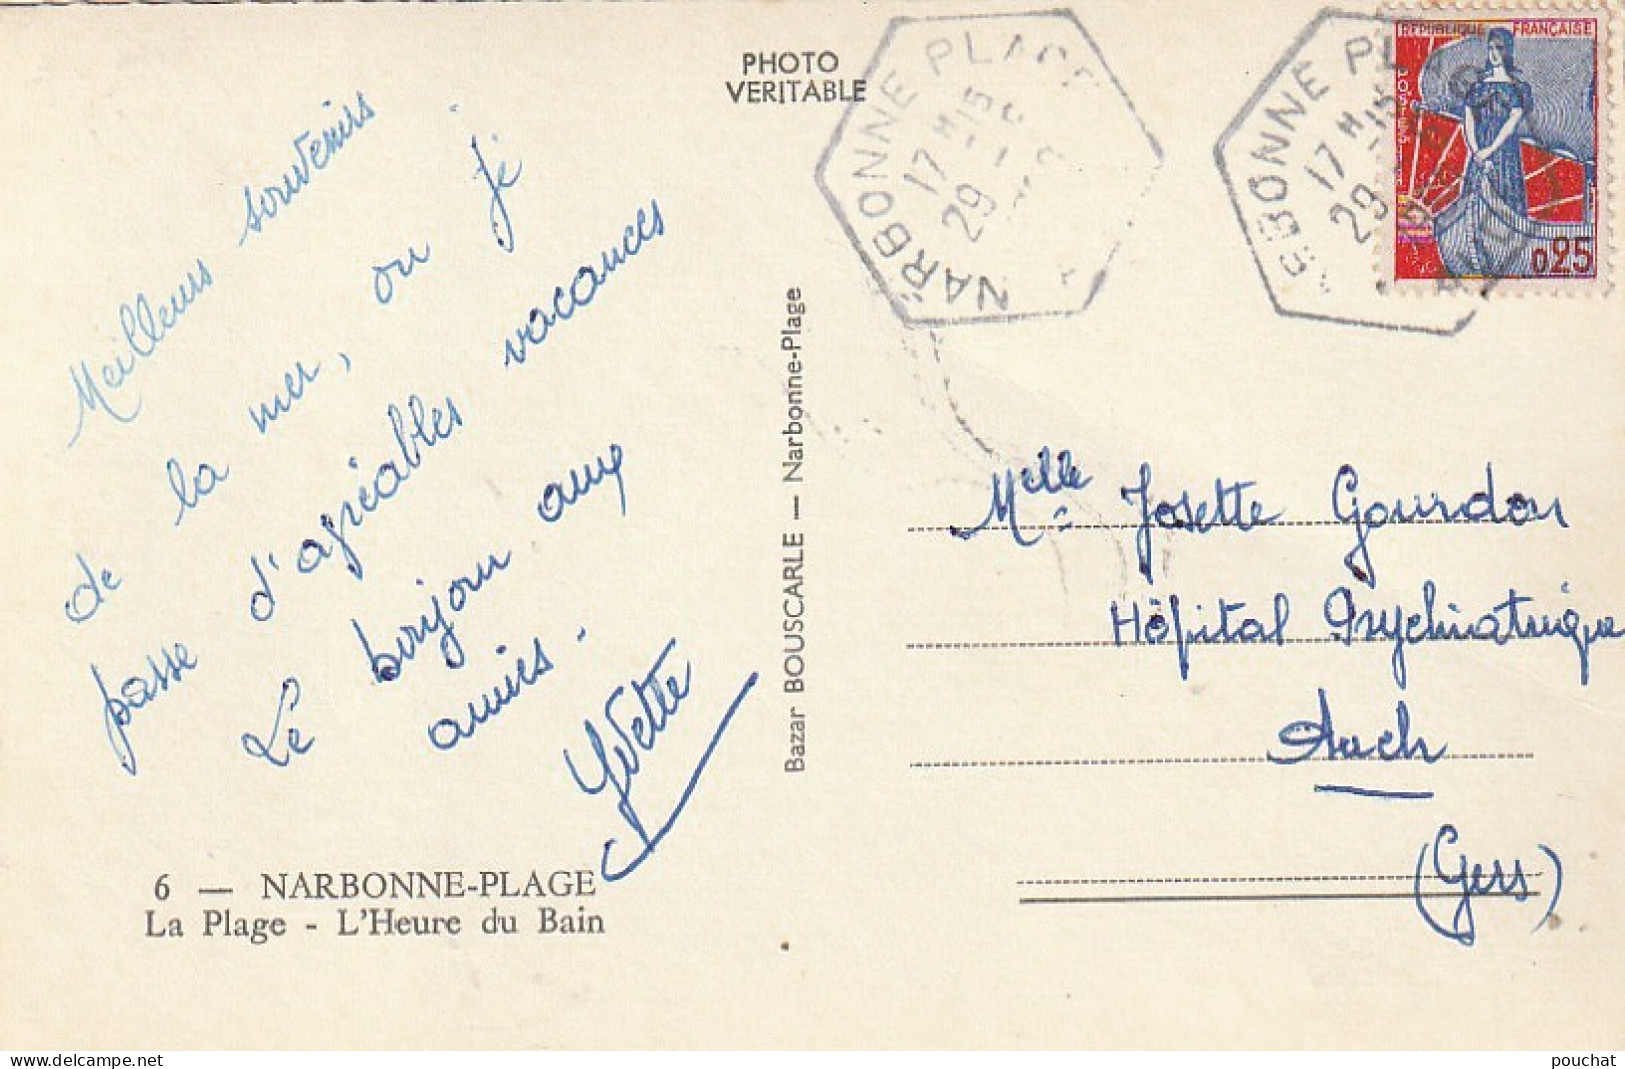 PHOTO
VERITABLE
NARBONNE PLAGE
17 H 15
29
BONNE PL
17 H 15
29
REPUBLIQUE FRANÇAISE
POSTES
0,25
Meilleurs souvenirs
de la mer, ou je
passe d'agréables vacances
Le bonjour aux
amies.
Yvette
Bazar BOUSCARLE — Narbonne-Plage
Melle Josette Gourdon
Hôpital Psychiatrique
Auch
(Gers)
6 — NARBONNE-PLAGE
La Plage - L'Heure du Bain
www.delcampe.net
pouchat